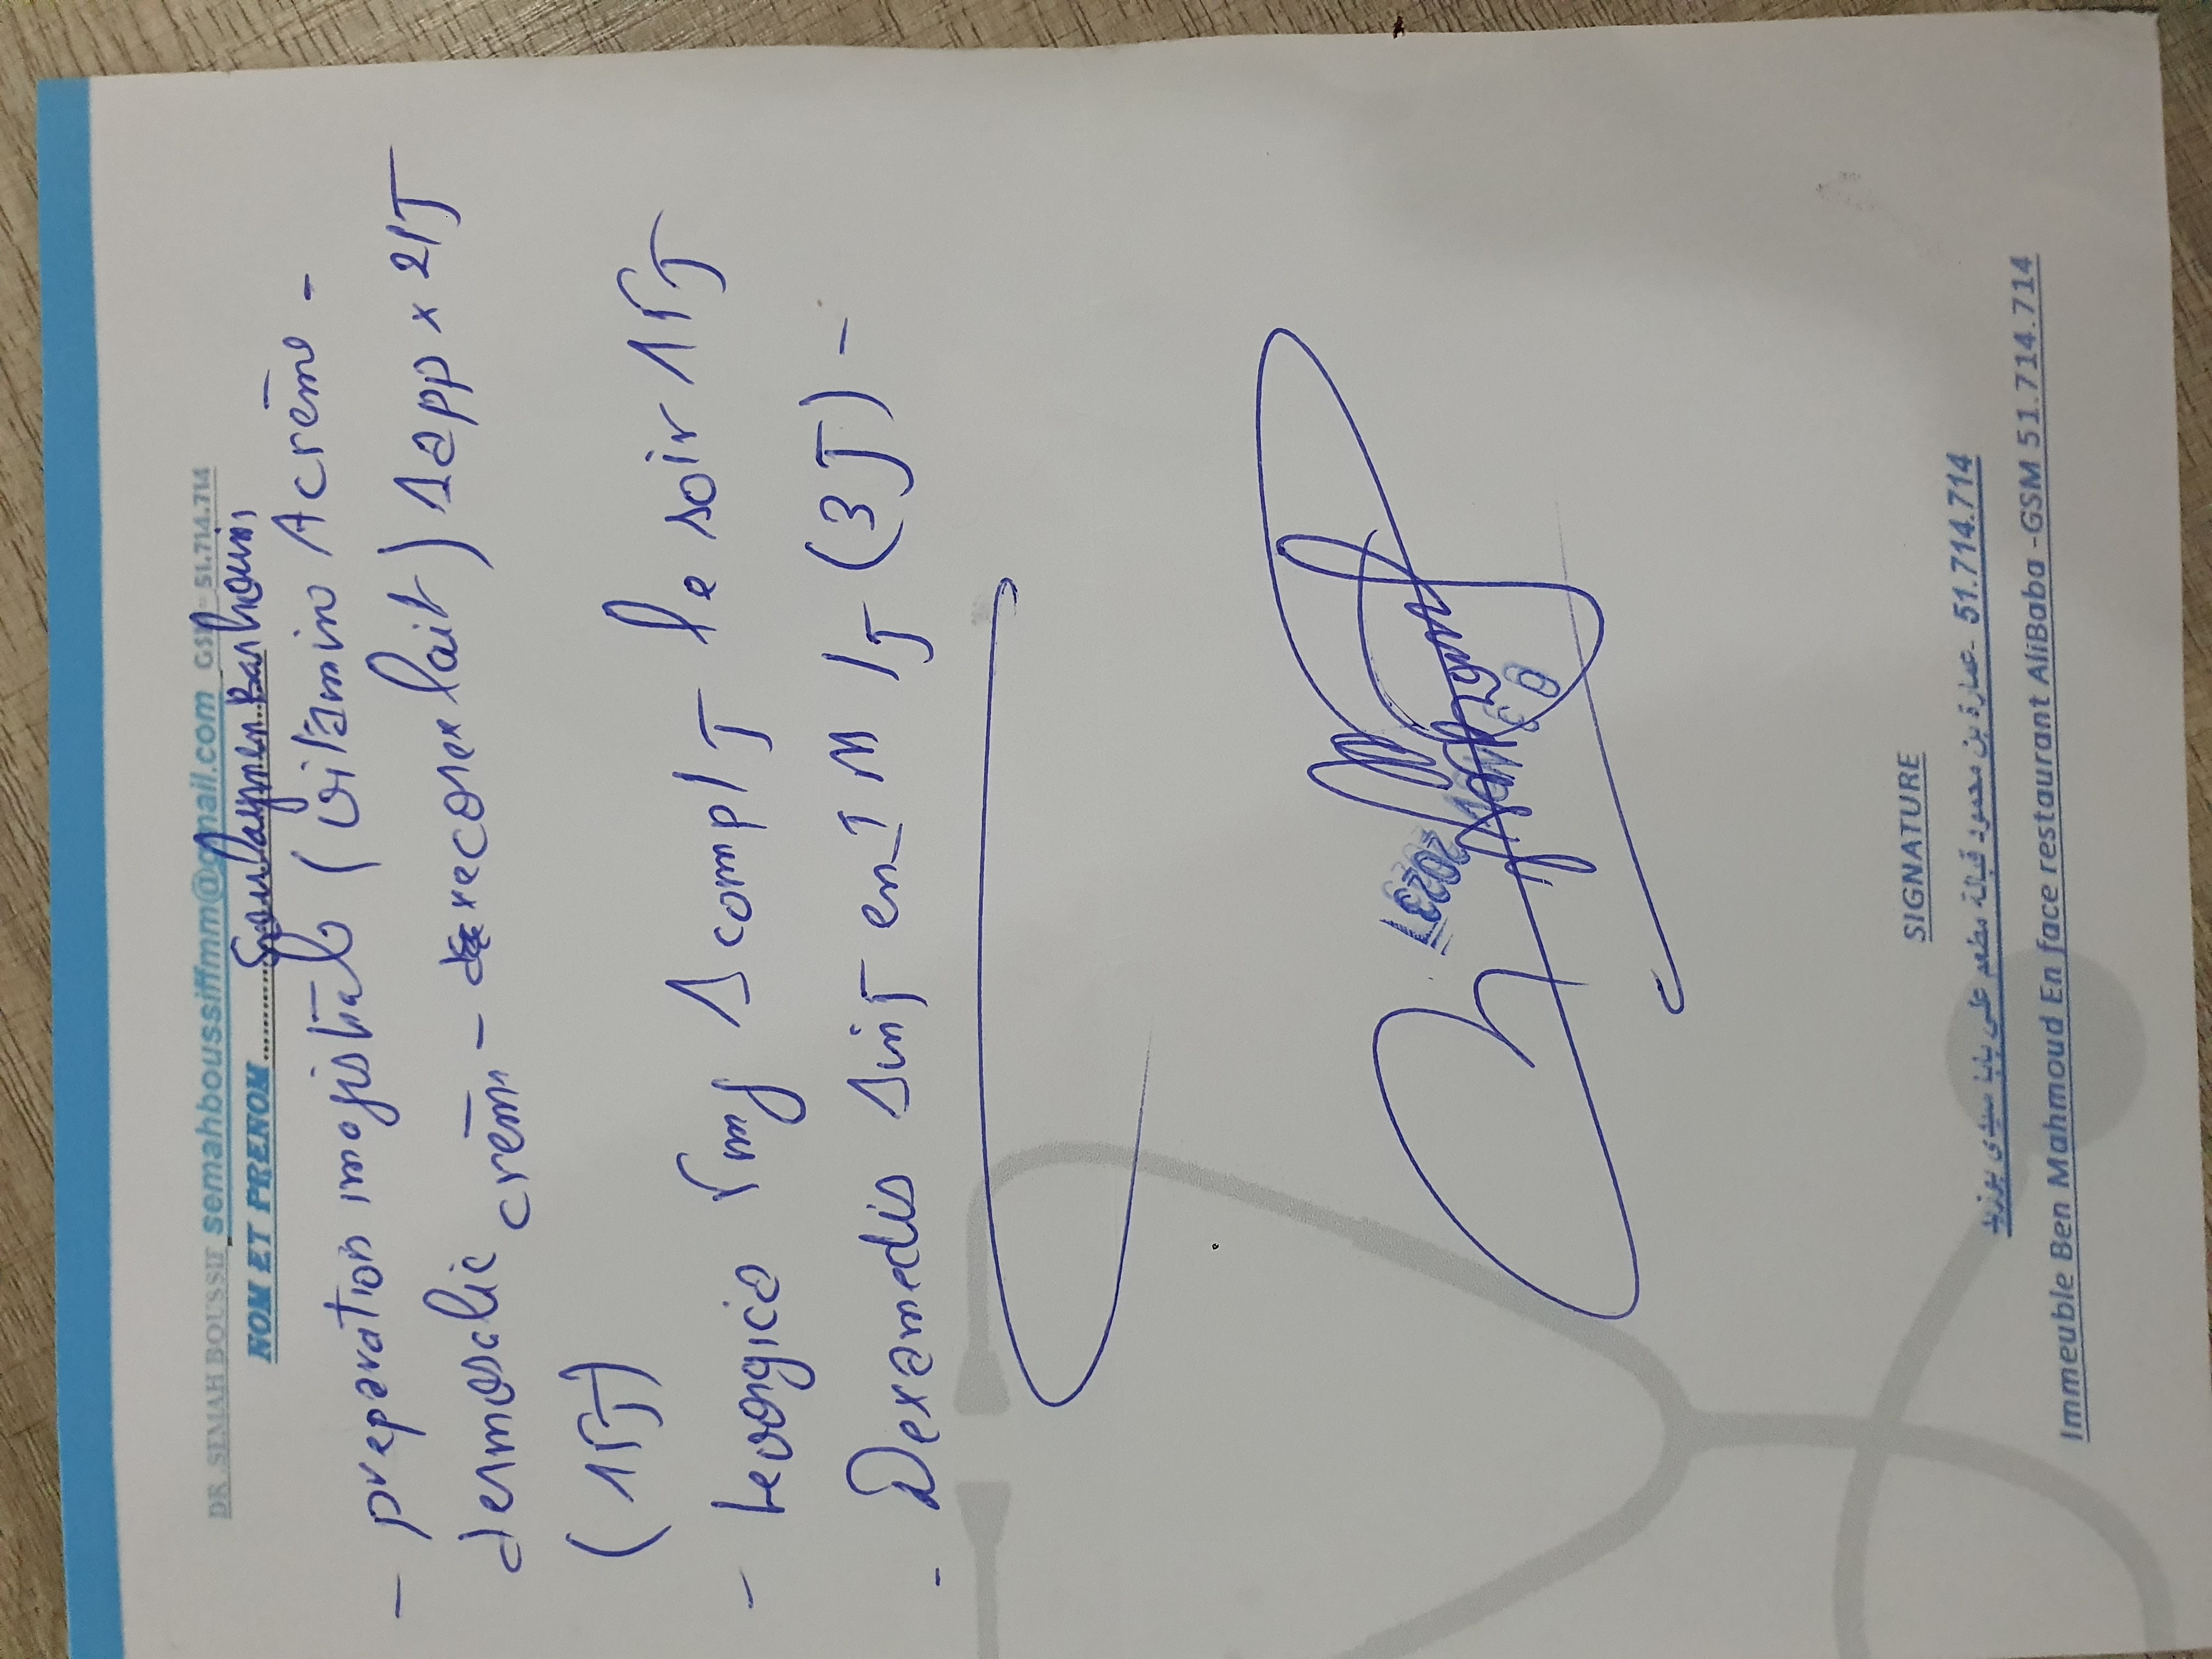 DR SEMAH BOUSSIF semahboussiffmm@gmail.com GSM= 51.714.714
NOM ET PRENOM
- preparation magistral (vitamin A crèm -
dermosalic crèm - execorex lait) 1app x 2/J
(15J)
- levorgico 5mg 1 comp/J le soir 15J
- Dexamedis 1inj en IM /J (3J) -
SIGNATURE
عمارة بن محمود قبالة مطعم علي بابا سيدي بوزيد - 51.714.714
Immeuble Ben Mahmoud En face restaurant AliBaba -GSM 51.714.714